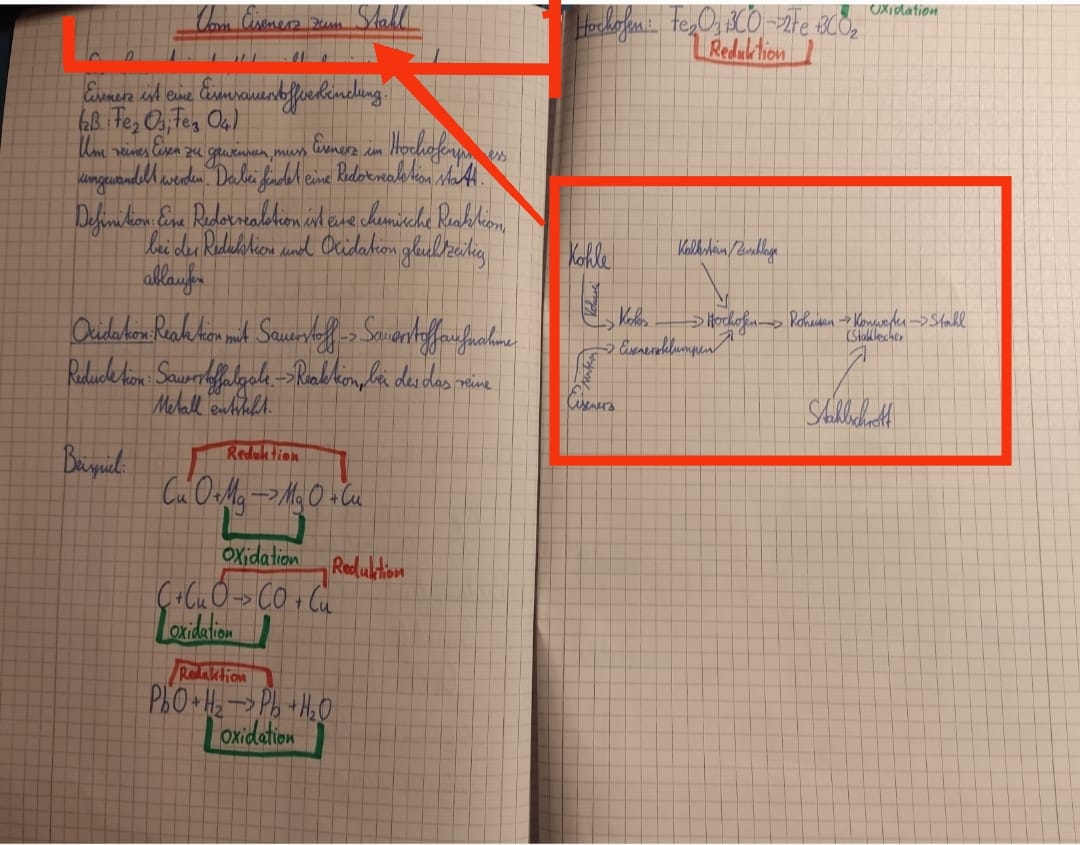 Vom Eisenerz zum Stahl
Eisenerz ist eine Eisensauerstoffverbindung.
(zB.: Fe₂O₃; Fe₃O₄)
Um reines Eisen zu gewinnen, muss Eisenerz im Hochofenprozess
umgewandelt werden. Dabei findet eine Redoxreaktion statt.
Definition: Eine Redoxreaktion ist eine chemische Reaktion,
bei der Reduktion und Oxidation gleichzeitig
ablaufen
Oxidation: Reaktion mit Sauerstoff -> Sauerstoffaufnahme
Reducktion: Sauerstoffabgabe -> Reaktion, bei der das reine
Metall entsteht.
Beispiel:
Reduktion
CuO + Mg -> MgO + Cu
oxidation
Reduktion
C + CuO -> CO + Cu
oxidation
Reduktion
PbO + H₂ -> Pb + H₂O
oxidation
Oxidation
Hochofen: Fe₂O₃ + 3CO -> 2Fe + 3CO₂
Reduktion
Kohle
Kalkstein/Zuschläge
Koks -> Hochofen -> Roheisen -> Konverter -> Stahl
Eisenerzklumpen
Eisenerz
Stahlschrott